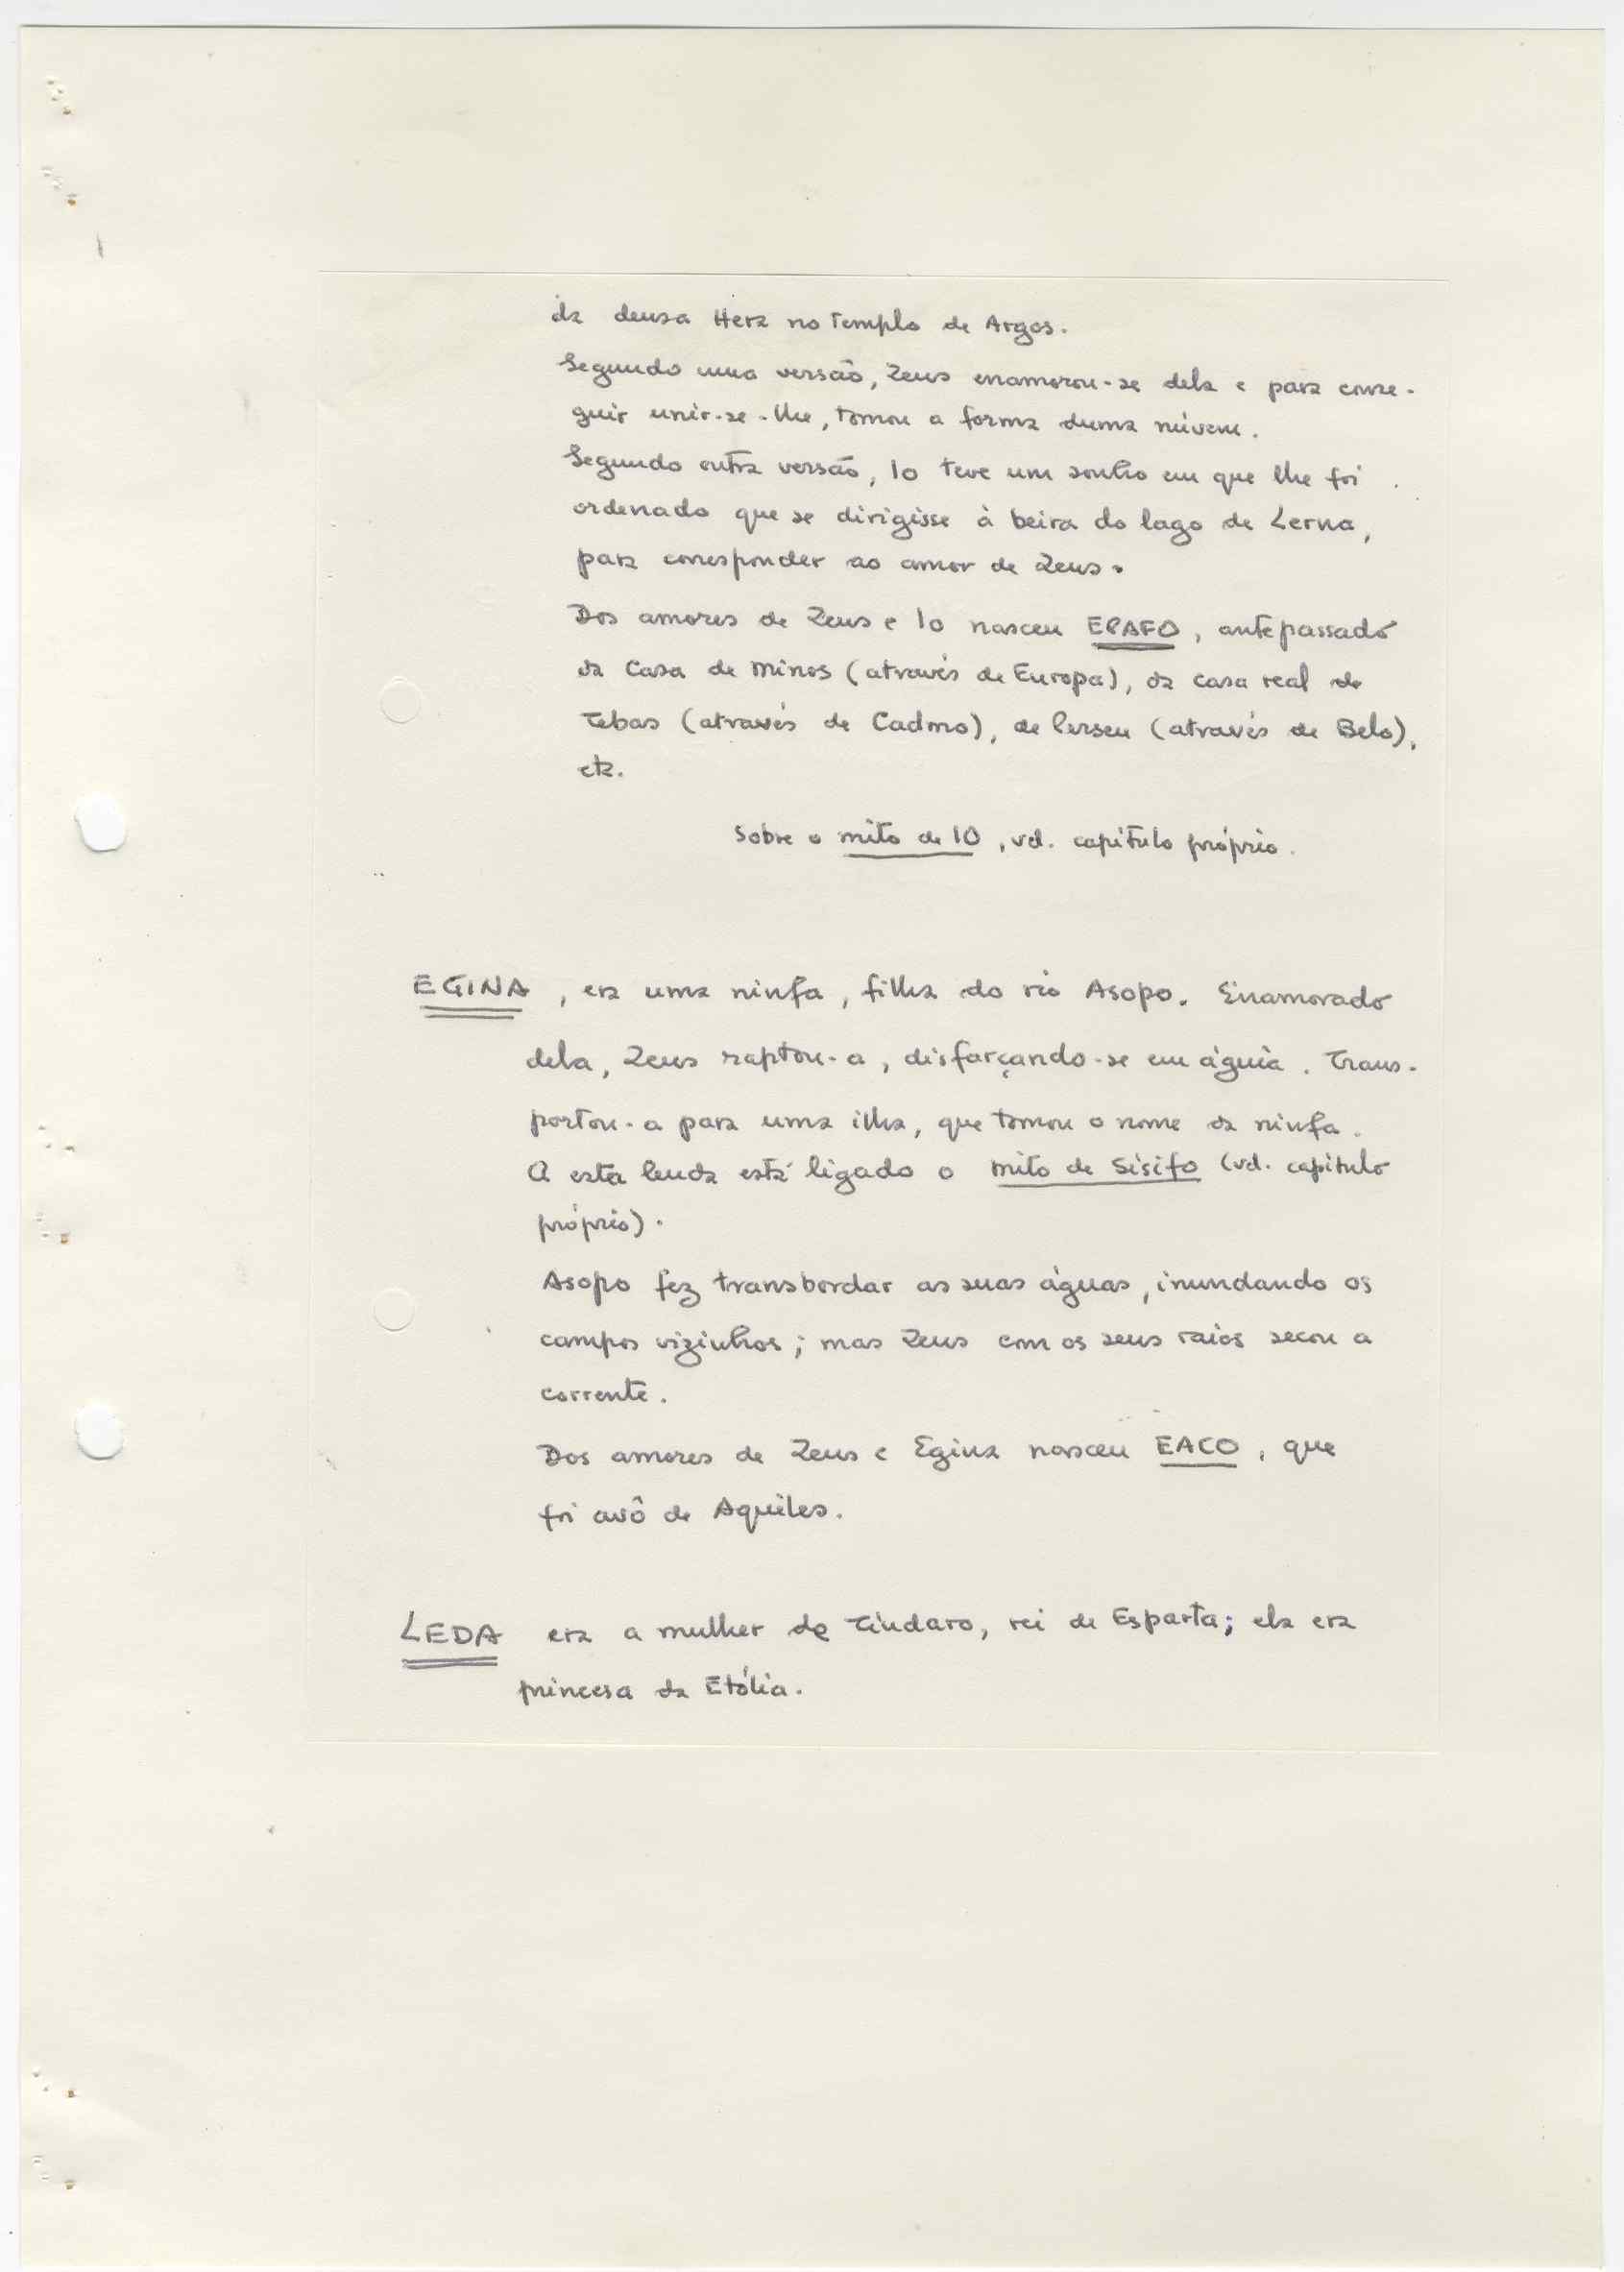 da deusa Hera no Templo de Argos.
Segundo uma versão, Zeus enamorou-se dela e para conse-
guir unir-se-lhe, tomou a forma duma núvem.
Segundo outra versão, Io teve um sonho em que lhe foi
ordenado que se dirigisse à beira do lago de Lerna,
para corresponder ao amor de Zeus.
Dos amores de Zeus e Io nasceu EPAFO, antepassado
da Casa de Minos (através de Europa), da casa real de
Tebas (através de Cadmo), de Perseu (através de Belo),
etc.
Sobre o mito de IO, vd. capítulo próprio.
EGINA, era uma ninfa, filha do rio Asopo. Enamorado
dela, Zeus raptou-a, disfarçando-se em águia. Trans-
portou-a para uma ilha, que tomou o nome da ninfa.
A esta lenda está ligado o mito de Sísifo (vd. capítulo
próprio).
Asopo fez transbordar as suas águas, inundando os
campos vizinhos; mas Zeus com os seus raios secou a
corrente.
Dos amores de Zeus e Egina nasceu EACO, que
foi avô de Aquiles.
LEDA era a mulher de Tíndaro, rei de Esparta; ela era
princesa da Etólia.